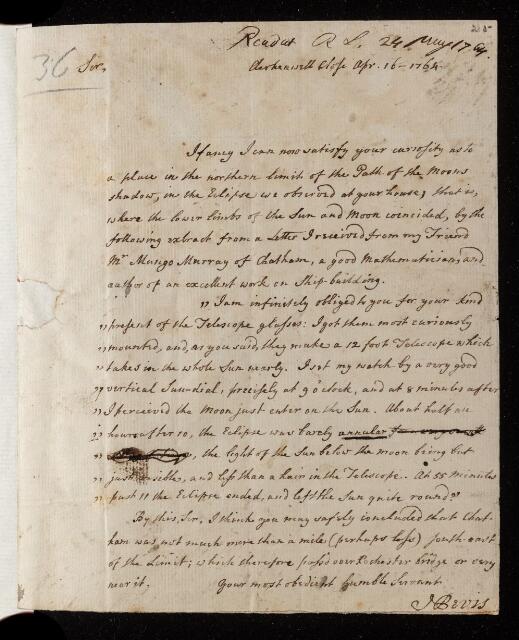 Read at R S. 24 May 1764.
36 Sir,
Clerkenwell Close Apr. 16 - 1764.
I fancy I can now satisfy your curiosity as to
a place in the northern limit of the Path of the Moons
shadow, in the Eclipse we observed at your house; that is,
where the lower limbs of the Sun and Moon coincided, by the
following extract from a Letter I received from my Friend
Mr. Mungo Murray of Chatham, a good Mathematician, and
author of an excellent work on Ship-building.
" I am infinitely obliged to you for your kind
" present of the Telescope glasses: I got them most curiously
" mounted, and, as you said, they make a 12 foot Telescope which
" takes in the whole Sun nearly. I set my watch by a very good
" vertical Sun-dial, precisely at 9 o'clock, and at 8 minutes after
" I perceived the Moon just enter on the Sun. About half an
" hour after 10, the Eclipse was barely annular
" , the light of the Sun below the moon being but
" just visible, and less than a hair in the Telescope. At 55 minutes
" past 11 the Eclipse ended, and left the Sun quite round"
By this, Sir, I think you may safely conclude that Chat-
ham was not much more than a mile (perhaps less) south-east
of the Limit; which therefore pass'd over Rochester bridge or very
near it. Your most obedient humble Servant
J Bevis